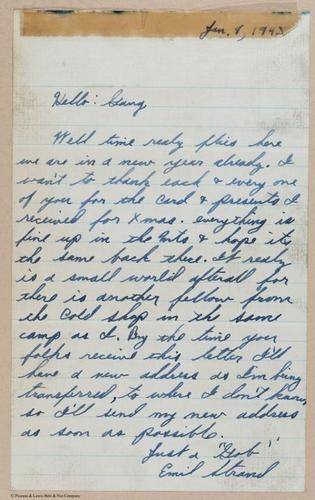 Jan. 8, 1943
Hello: Gang
Well time realy flies here
we are in a new year already. I
want to thank each & every one
of you for the card & presents I
received for Xmas. Everything is
fine up in the mts & hope its
the same back there. It realy
is a small world afterall for
there is another fellow from
the Cold Shop in the same
camp as I. By the time your
folks receive this letter I'll
have a new address as I'm being
transferred, to where I don't know,
so I'll send my new address
as soon as possible.
Just a "Gob"
Emil Strand
© Picatti & Lewis, Bolt & Nut Company